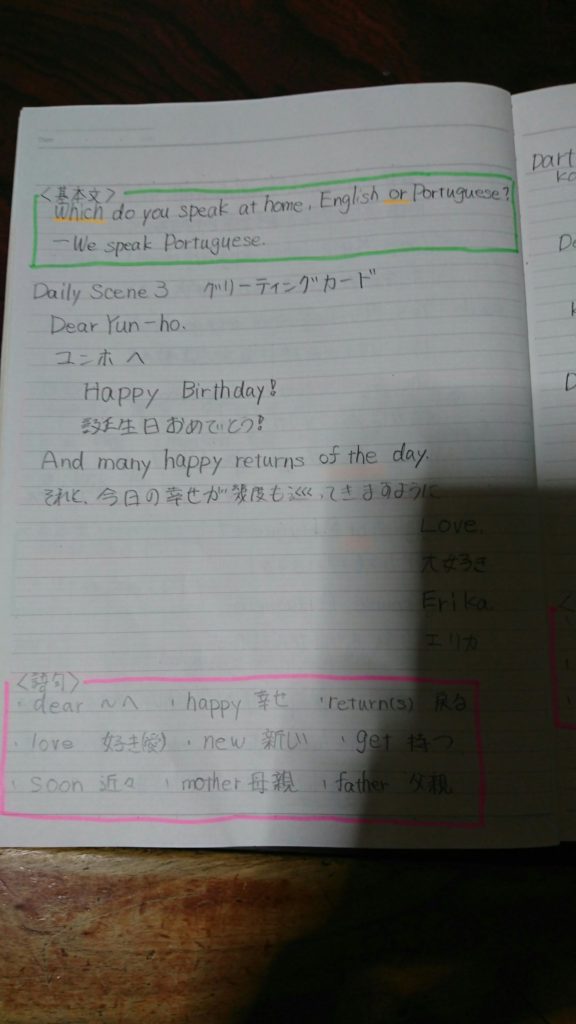 <基本文>
Which do you speak at home, English or Portuguese?
－We speak Portuguese.
Daily Scene 3 グリーティングカード
Dear Yun-ho.
ユンホ へ
Happy Birthday!
誕生日おめでとう!
And many happy returns of the day.
それと、今日の幸せが幾度も巡ってきますように
Love.
大好き
Erika.
エリカ
<語句>
・dear ～へ ・happy 幸せ ・return(s) 戻る
・love 好き(愛) ・new 新しい ・get 持つ
・soon 近々 ・mother 母親 ・father 父親
Dart